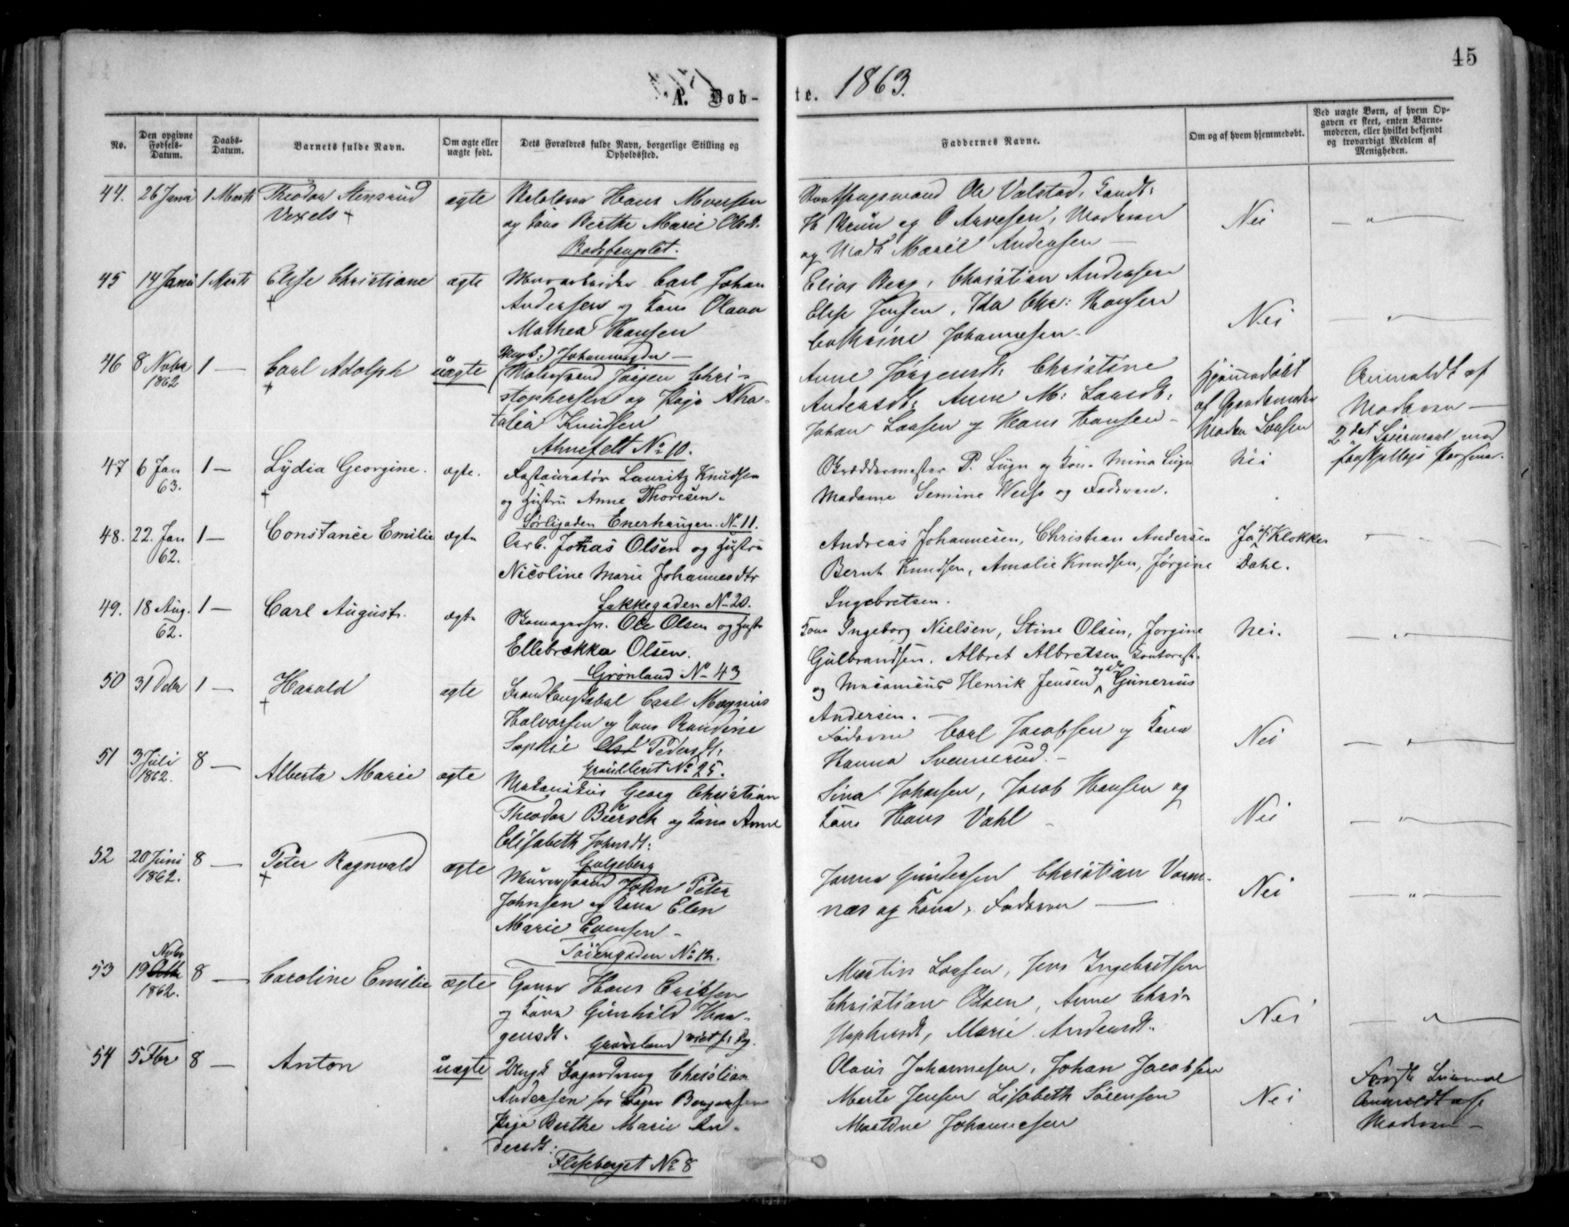 45
A. Døb-te. 1863.
No.
Den opgivne Fødsels-Datum.
Daabs-Datum.
Barnets fulde Navn.
Om ægte eller uægte født.
Dets Forældres fulde Navn, borgerlige Stilling og Opholdssted.
Faddernes Navne.
Om og af hvem hjemmedøbt.
Ved uægte Børn, af hvem Opgaven er skeet, enten Barnemoderen, eller hvilket bekjendt og troværdigt Medlem af Menigheden.
44. 26 Janu 1 Marts Theodor Stensrud ægte Hans
Vexels + og Kone Berthe Marie Olsdt.
Ole Valstad,
og O Arvesen, Madame
og Marie Andersen
Nei
45 14 Janu 1 Marts Else Christiane ægte Murarbeider Carl Johan
+ Andersen og Kone Olava
Mathea Hansen
Elias Berg, Christian Andersen
Elise Jensen, Ida Chr: Hansen
Cathrine Johannesen.
Nei
46 8 Novbr 1862 1 — Carl Adolph uægte Johannesgdn
+ Jørgen Chri-
stophersen og Pige Tha-
lia Knudsen
Ahnefelt No 10.
Anne Jørgensdt: Christine
Andersdt: Anne M: Larsdt:
Johan Larsen og Hans Hansen
Hjemmedøbt
af
Maden Larsen
Anmeldt af
Moderen —
2det Leiermaal med
47 6 Jan 63. 1 — Lydia Georgine. ægte. Restauratør Lauritz Knudsen
+ og Hustru Anne Thoresen.
Sørligaden Enerhaugen No 11.
Skræddermester P. Lign og Kone Mina Lign
Madame Semine Weise og Faderen.
Nei
48. 22. Jan 62. 1 — Constance Emilie ægte Arb. Jonas Olsen og Hustru
Nicoline Marie Johannesdtr
Lakkegaden No 20.
Andreas Johannesen, Christian Andersen
Bernt Knudsen, Amalie Knudsen, Jørgine
Ingebretsen.
Ja af Klokker
Dahl.
49. 18 Aug. 62. 1 — Carl August. ægte Ole Olsen og Hustr
Ellebrækka Olsen.
Grønland No 43
Kone Ingeborg Nielsen, Stine Olsen, Jørgine
Gulbrandsen. Albret Albretsen Kontorist
og Henrik Jensen Gunerius
Andersen.
Nei.
50 31 Debr 1 — Harald ægte Carl Magnus
+ Halvorsen og Kone Randine
Sophie Pedersdt:
No 25.
Faderen Carl Jacobsen og Kone
Hanna Svenserud.
Nei
51 3 Juli 1862. 8 — Alberta Marie ægte Mekanikus Georg Christian
Theodor Biersch og Kone Anne
Elisabeth Johnsdt:
Galgeberg
Sina Johnsen, Jacob Hansen og
Kone Hans Vahl
Nei
52 20 Juni 1862. 8 — Peter Ragnvald ægte Murersvend John Peter
+ Johnsen og Kone Elen
Marie Evensen
Tøiengaden No 12.
Janna Gundersen Christian Vorm-
næs og Kone, Faderen
Nei
53 19 Novbr 1862. 8 — Caroline Emilie ægte Hans Eriksen
og Kone Gunhild Haa-
gensdt. Grønland
Martin Larsen, Jens Ingebritsen
Christian Olsen, Anne Chri-
stophersdt, Marie Andersdt.
Nei
54 5 Fbr 8 — Anton uægte Ungk Christian
Andersen for
Pige Berthe Marie An-
dersdt:
Flisberget No 8
Olaus Johannesen, Johan Jacobsen
Marte Jensen Lisabeth Sørensen
Martine Johannesen
Nei
Første Leiermaal
Anmeldt af
Moderen —